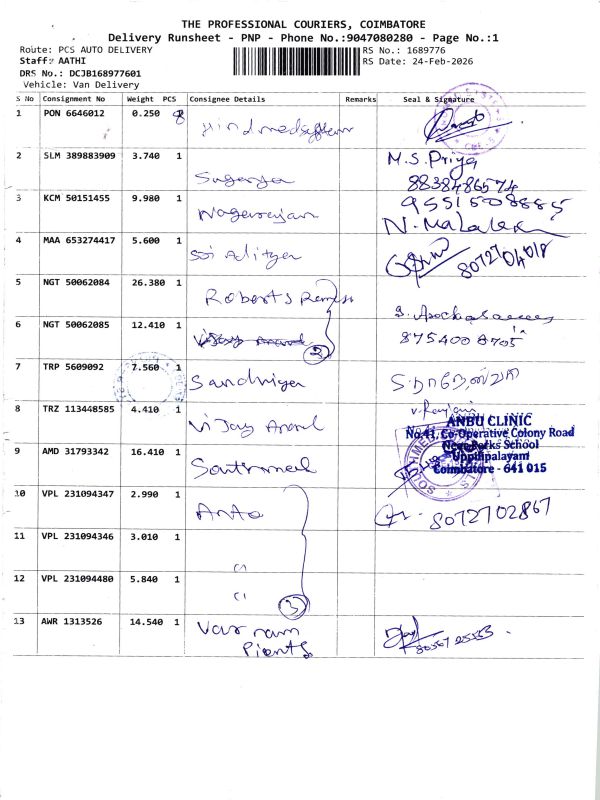 THE PROFESSIONAL COURIERS, COIMBATORE
Delivery Runsheet - PNP - Phone No.:9047080280 - Page No.:1
Route: PCS AUTO DELIVERY
RS No.: 1689776
Staff: AATHI
RS Date: 24-Feb-2026
DRS No.: DCJB168977601
Vehicle: Van Delivery
S No Consignment No Weight PCS Consignee Details Remarks Seal & Signature
1 PON 6646012 0.250
2 SLM 389883909 3.740 1 M.S. Priya
8838486574
3 KCM 50151455 9.980 1 Nagarajan 9551508885
4 MAA 653274417 5.600 1 Sri Aditya 8072704018
5 NGT 50062084 26.380 1 Roberts
6 NGT 50062085 12.410 1 Vijay Anand 3 8754008705
7 TRP 5609092 7.560 1 Sandhiya
8 TRZ 113448585 4.410 1 Vijay Anand V. Ranjani
ANBU CLINIC
No.41, Co-Operative Colony Road
Near Parks School
Uppilipalayam
Coimbatore - 641 015
9 AMD 31793342 16.410 1
10 VPL 231094347 2.990 1 Anto 8072702867
11 VPL 231094346 3.010 1
12 VPL 231094480 5.840 1 3
13 AWR 1313526 14.540 1